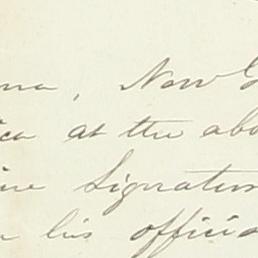 na, Now G
ica at the abo
ine Signature
n his officia